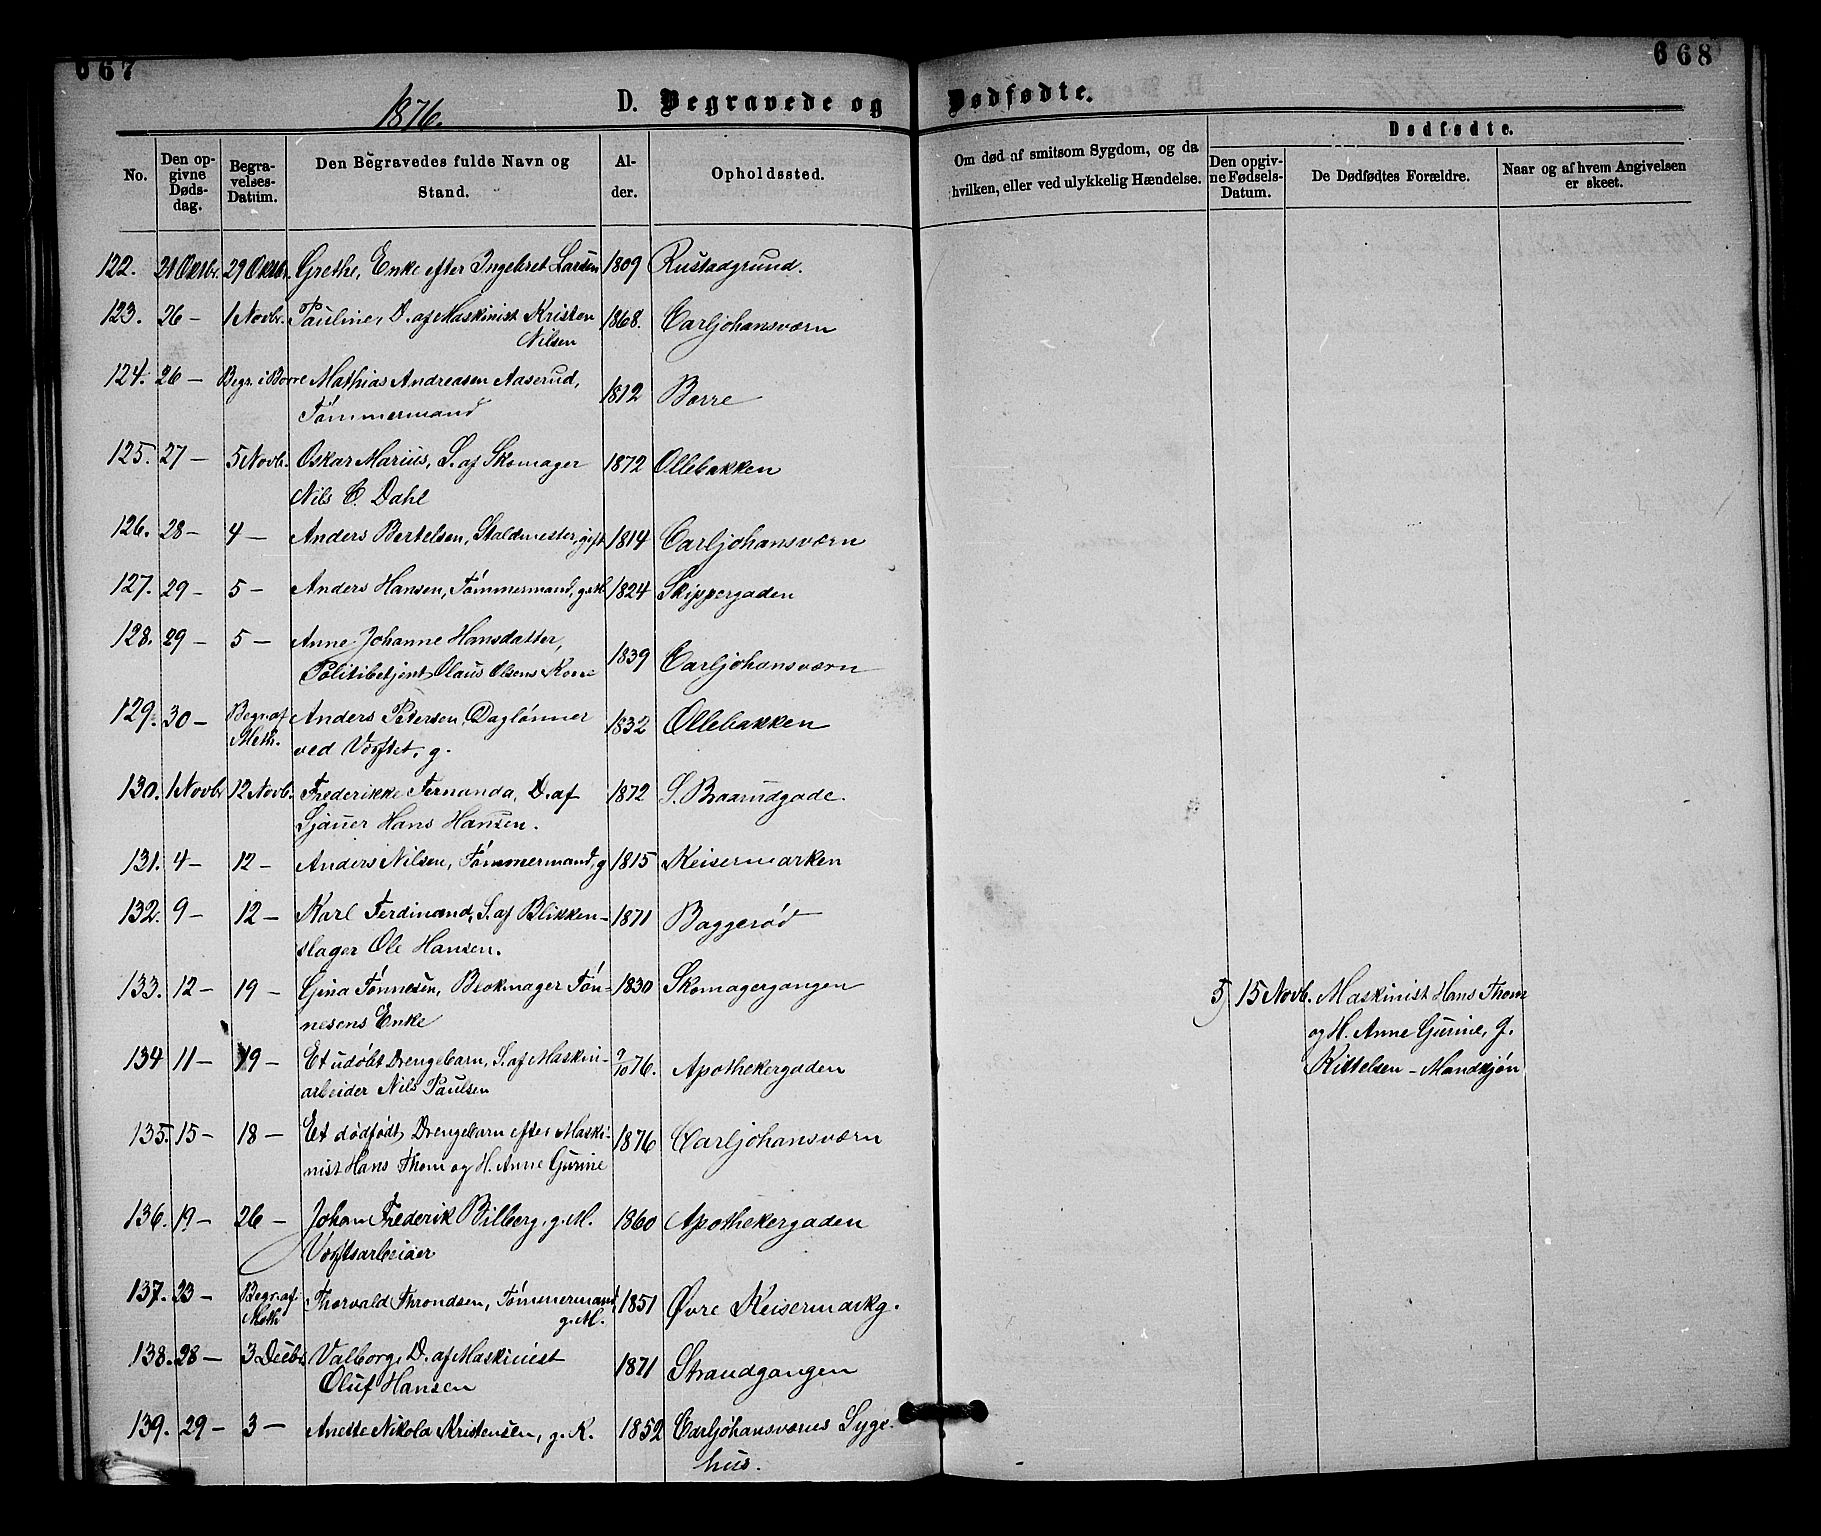 667
668
1876.
D. Begravede og Dødfødte.
No.
Den opgivne Dødsdag.
Begravelses-Datum.
Den Begravedes fulde Navn og Stand.
Alder.
Opholdssted.
Om død af smitsom Sygdom, og da hvilken, eller ved ulykkelig Hændelse.
Dødfødte.
Den opgivne Fødsels-Datum.
De Dødfødtes Forældre.
Naar og af hvem Angivelsen er skeet.
122. 21 Oktbr. 29 Oktbr. Grethe, Enke efter Ingebret Larsen 1809 Rustadgrund.
123. 26 — 1 Novbr. Pauline, D. af Maskinist Kristen 1868. Carljohansværn
Nilsen
124. 26 — Begr. i Borre Mathias Andreasen Aaserud, 1812 Borre
Tømmermand
125. 27 — 5 Novb. Oskar Marius, S. af Skomager 1872 Ollebakken
Nils C. Dahl
126. 28 — 4 — Anders Bertelsen, Staldmester, gift 1814 Carljohansværn
127. 29 — 5 — Anders Hansen, Tømmermand, g.M. 1824 Skippergaden
128. 29 — 5 — Anne Johanne Hansdatter, 1839 Carljohansværn
Politibetjent Olaus Olsens Kone
129. 30 — Begr. af Meth. Anders Petersen, Daglønner 1832 Ollebakken
ved Værftet, g.
130. 1 Novbr 12 Novb. Frederikke Fernanda, D. af 1872 S. Baarudgade.
Sjauer Hans Hansen.
131. 4 — 12 — Anders Nilsen, Tømmermand, g 1815 Keisermarken
132. 9 — 12 — Karl Ferdinand, S. af Blikken- 1871 Baggerød
slager Ole Hansen.
133. 12 — 19 — Gina Tønnesen, Blokmager Tøn- 1830 Skomagergangen
nesens Enke
5) 15 Novb. Maskinist Hans Thom
og H. Anne Gurine, f.
Kittelsen — Mandkjøn
134 11 — 19 — Et udøbt Drengebarn, S. af Maskin- 9/10 76. Apothekergaden
arbeider Nils Paulsen
135. 15 — 18 — Et dødfødt Drengebarn efter Maski- 1876 Carljohansværn
nist Hans Thom og H. Anne Gurine
136. 19 — 26 — Johan Frederik Bilberg, g.M. 1860 Apothekergaden
Værftsarbeider
137. 23 — Begr. af Meth Thorvald Throndsen, Tømmermand, 1851 Øvre Keisermarkg.
g.M.
138. 28 — 3 Decbr Valborg, D. af Maskinist 1871 Strandgangen
Oluf Hansen
139. 29 — 3 — Anette Nikola Kristensen, g.K. 1852 Carljohansværns Syge-
hus.